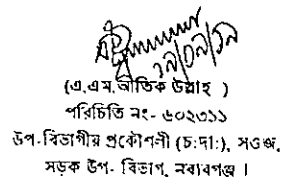 ১৮/০৭/১৯
(এ.এম.আতিক উল্লাহ )
পরিচিতি নং- ৬০২৩১১
উপ-বিভাগীয় প্রকৌশলী (চ:দা:), সওজ,
সড়ক উপ- বিভাগ, নবাবগঞ্জ।